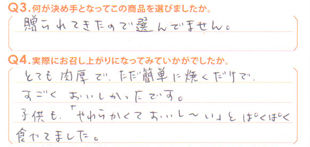 Q3.何が決め手となってこの商品を選びましたか。
贈られてきたので選んでません。
Q4.実際にお召し上がりになってみていかがでしたか。
とても肉厚で、ただ簡単に焼くだけで、
すごくおいしかったです。
子供も、「やわらかくておいし〜い」とぱくぱく
食べてました。